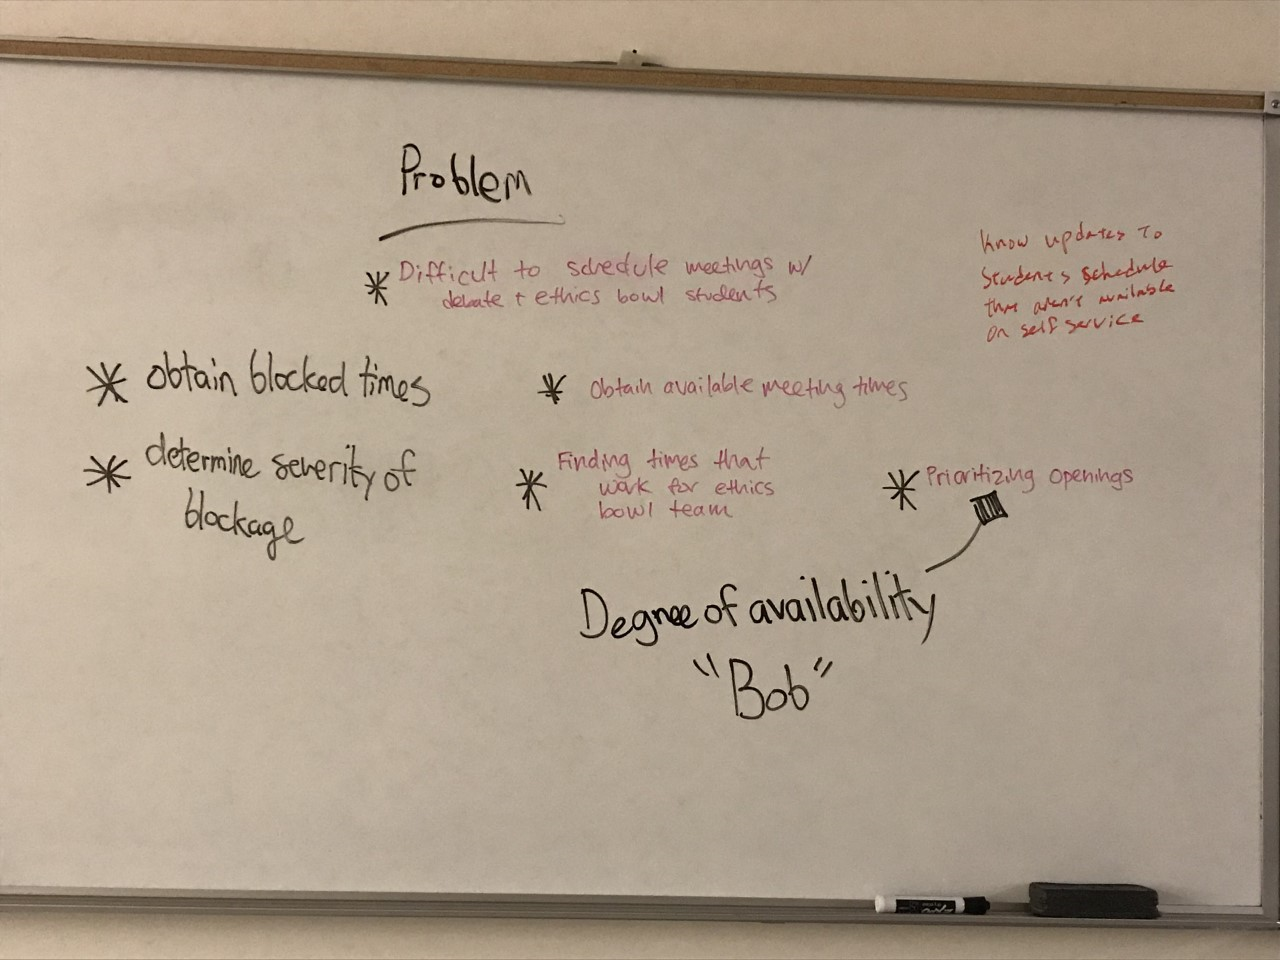 Problem
* Difficult to schedule meetings w/
debate + ethics bowl students
Know updates to
Students schedule
that aren't available
on self service
* obtain blocked times
* Obtain available meeting times
* determine severity of
blockage
* Finding times that
work for ethics
bowl team
* Prioritizing openings
Degree of availability
"Bob"